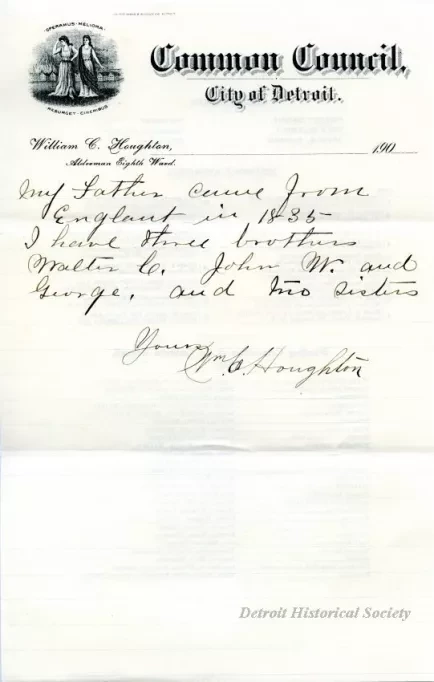 SPERAMUS MELIORA
RESURGET CINERIBUS
Common Council,
City of Detroit.
William C. Houghton,
Alderman Eighth Ward.
190
My Father came from
England in 1835
I have three brothers
Walter C. John W. and
George, and two sisters
Yours
Wm C. Houghton
Detroit Historical Society